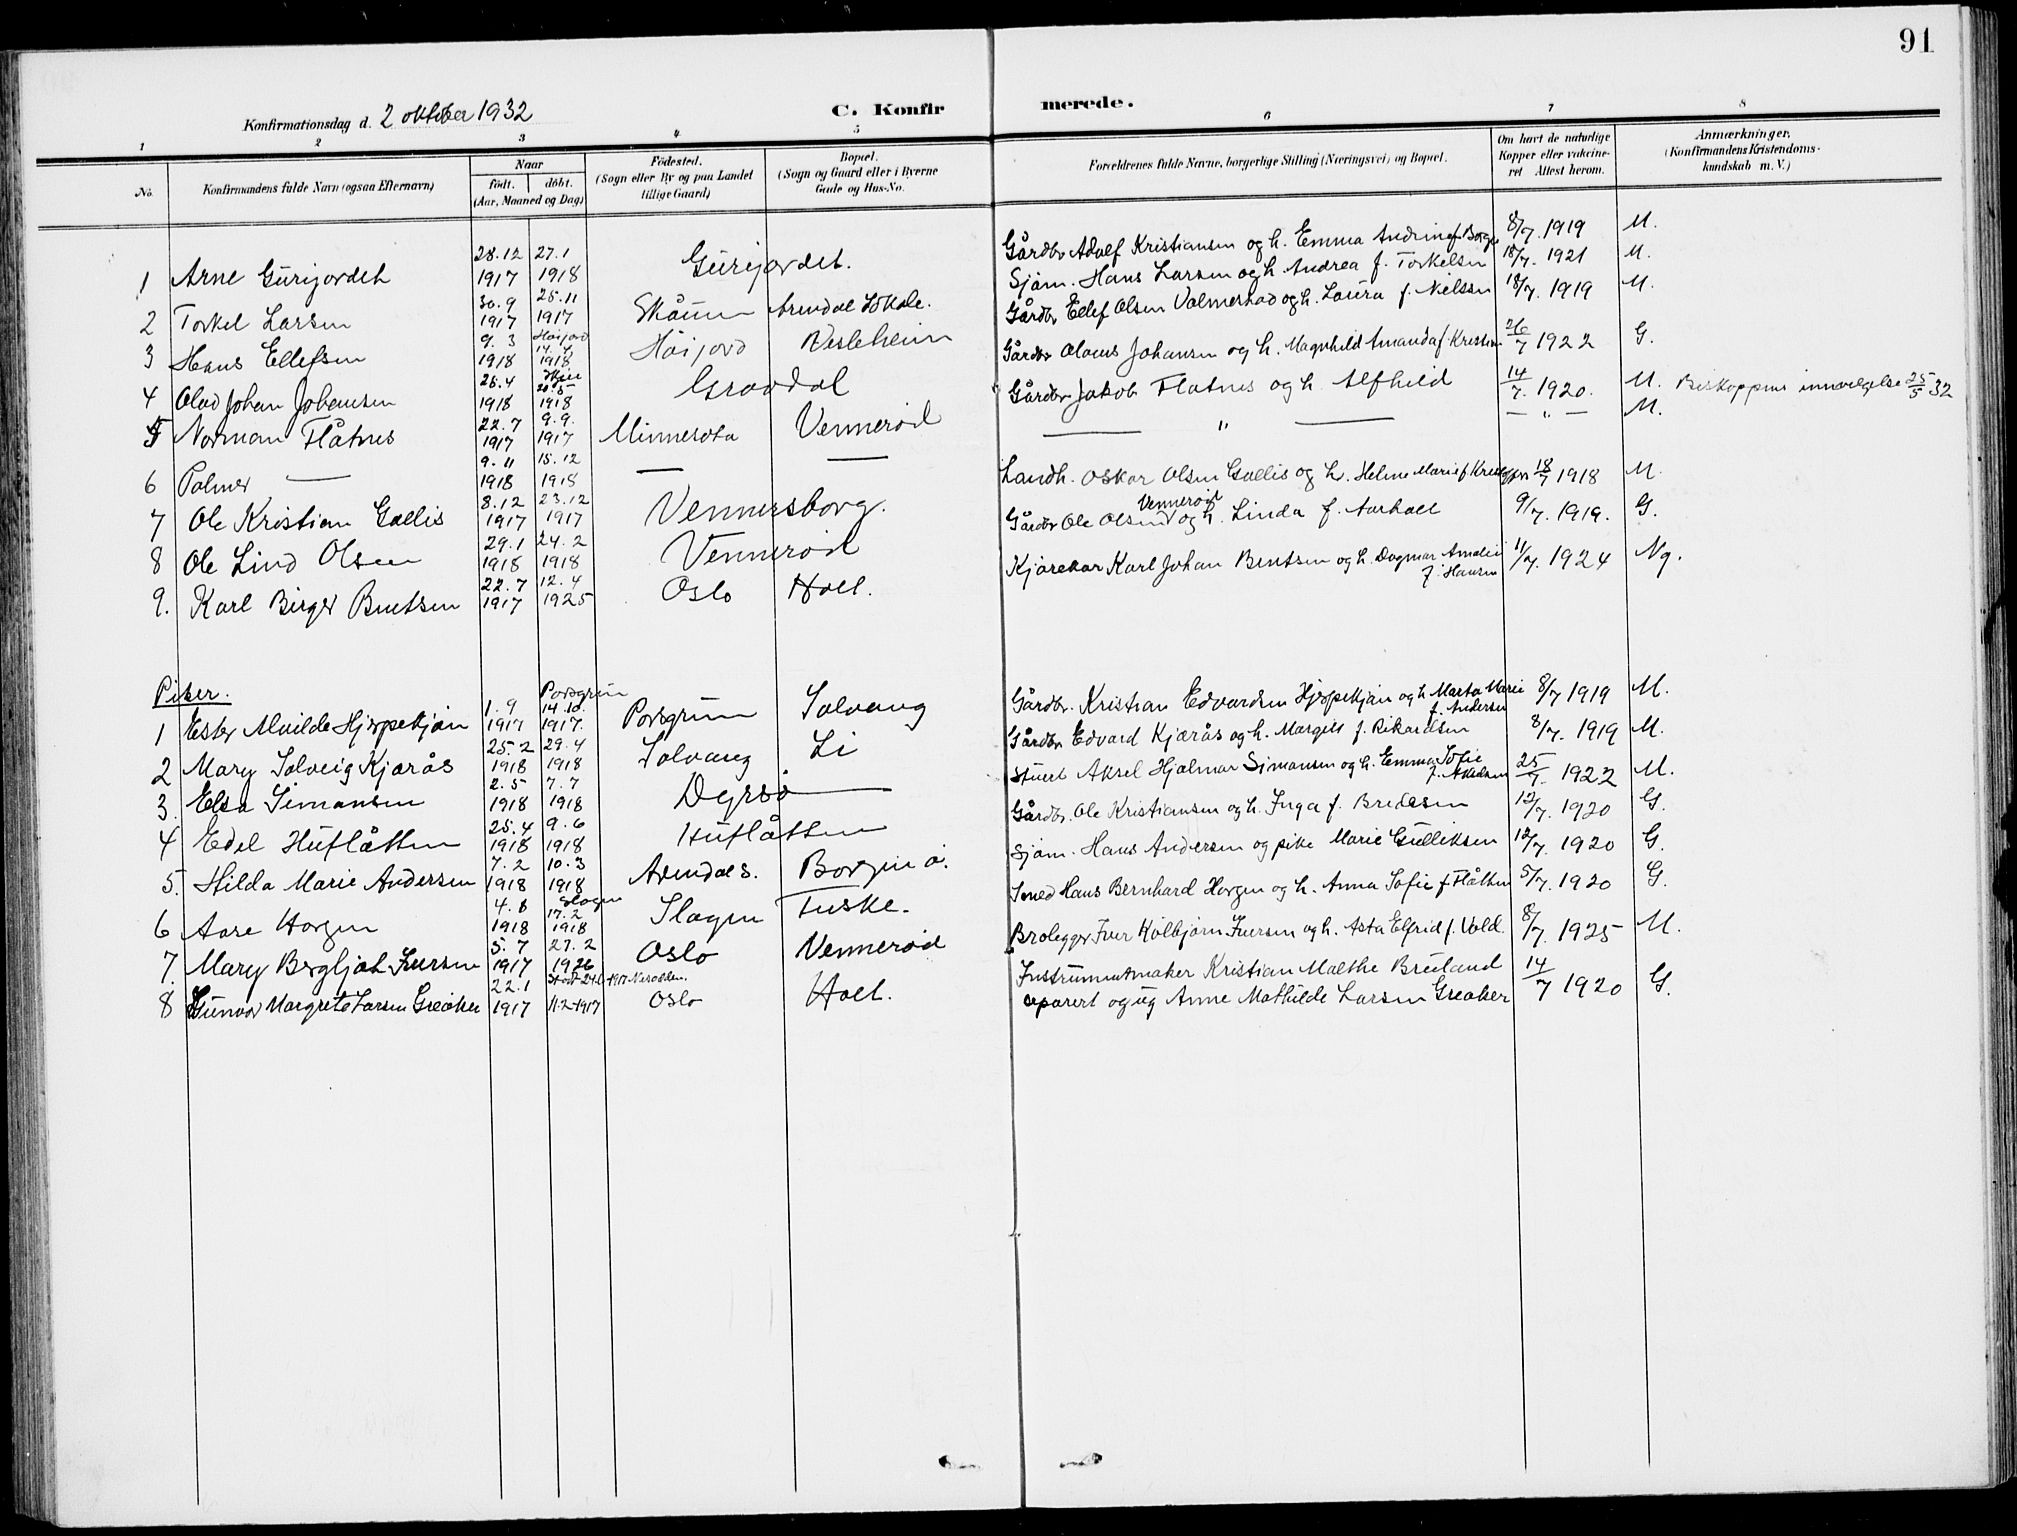 91
Konfirmationsdag d. 2 oktober 1932
C. Konfirmerede.
1 2 3 4 5 6 7 8
No.
Konfirmandens fulde Navn (ogsaa Efternavn)
Naar
födt. döbt.
(Aar, Maaned og Dag)
Födested.
(Sogn eller By og paa Landet
tillige Gaard)
Bopæl.
(Sogn og Gaard eller i Byerne
Gade og Hus-No.
Forældrenes fulde Navne, borgerlige Stilling (Næringsvei) og Bopæl.
Om havt de naturlige
Kopper eller vakcine-
ret Attest herom.
Anmærkninger.
(Konfirmandens Kristendoms-
kundskab m. V.)
1 Arne Gurijordet 28.12 1917 27.1 1918 Gurijordet. Gårdbr Adolf Kristiansen og h. Emma Andrine f. Borge 8/7 1919 M.
2 Torkel Larsen 30.9 1917 25.11 1917 Skåum Arendal Sjøm. Hans Larsen og h. Andrea f. Torkelsen 18/7. 1921 M.
3 Hans Ellefsen 9.3 1918 Høijord 14.4 1918 Høijord Vesleheim Gårdbr Ellef Olsen og h. Laura f. Nielsen 18/7. 1919 M.
4 Olav Johan Johansen 28.4 1918 20.5 1918 Gravdal Gårdbr Olaus Johansen og h. Magnhild Amanda f. Kristian 26/7 1922 G.
5 Norman Flåtnes 22.7 1917 9.9. 1917 Minnesota Vennerød Gårdbr Jakob Flatnes og h. Alfhild 14/7. 1920. M. Biskoppens innvilgelse 25/5 32
6 Palmer — 9.11 1918 15.12 1918 — — — " — — " — M.
7 Ole Kristian Gallis 8.12 1917 23.12 1917 Vennersborg. Landh. Oskar Olsen Gallis og h. Helene Marie f. 18/7 1918 M.
8 Ole Lind Olsen 29.1 1918 24.2 1918 Vennerød Gårdbr Ole Olsen Vennerød og h. Linda f. Aarholt 9/7. 1919. G.
9. Karl Birger Bentsen 22.7 1917 12.4 1925 Oslo Holt. Kjørekar Karl Johan Bentsen og h. Dagmar Amalie f. Hansen 11/7. 1924 Ng.
Piker.
1 Ester Alvilde Hjerpekjøn 1.9 1917 Porsgrun 14.10. 1917. Porsgrun Solvang Gårdbr. Kristian Edvardsen Hjerpekjøn og h. Marta Marie f. Andersen 8/7 1919 M.
2 Mary Solveig Kjærås 25.2 1918 29.4 1918 Solvang Li Gårdbr Edvard Kjærås og h. Margit f. Rikardsen 8/7. 1919 M.
3. Elsa Simonsen 2.5 1918 7.7 1918 Dyrsø — Stuert Aksel Hjalmar Simonsen og h. Emma Sofie f. Akselsen 25/7. 1922 M.
4 Edel Huflåtten 25.4 1918 9.6 1918 Huflåtten Gårdbr. Ole Kristiansen og h. Inga f. Bredesen 12/7. 1920 G.
5. Hilda Marie Andersen 7.2 1918 10.3 1918 Arendals. Borgen Sjøm. Hans Andersen og pike Marie Gulliksen 12/7. 1920 G.
6 Aase Horgen 4.8 1918 Slagen 17.2 1918 Slagen Tuske. Smed Hans Bernhard Horgen og h. Anna Sofie f. Flåtten 5/7. 1920 G.
7. Mary Bergljot Iversen 5.7 1917 27.2 1926 Oslo Vennerød Brolegger Iver Kolbjørn Iversen og h. Asta Elfrid f. Vold. 8/7. 1925 M.
8 Gunvor Margrete Larsen Greaker 22.1 1917 11.2 1917 Oslo Holt. Instrumentmaker Kristian Malthe Breiland separert og ug Anne Mathilde Larsen Greaker 14/7 1920 G.